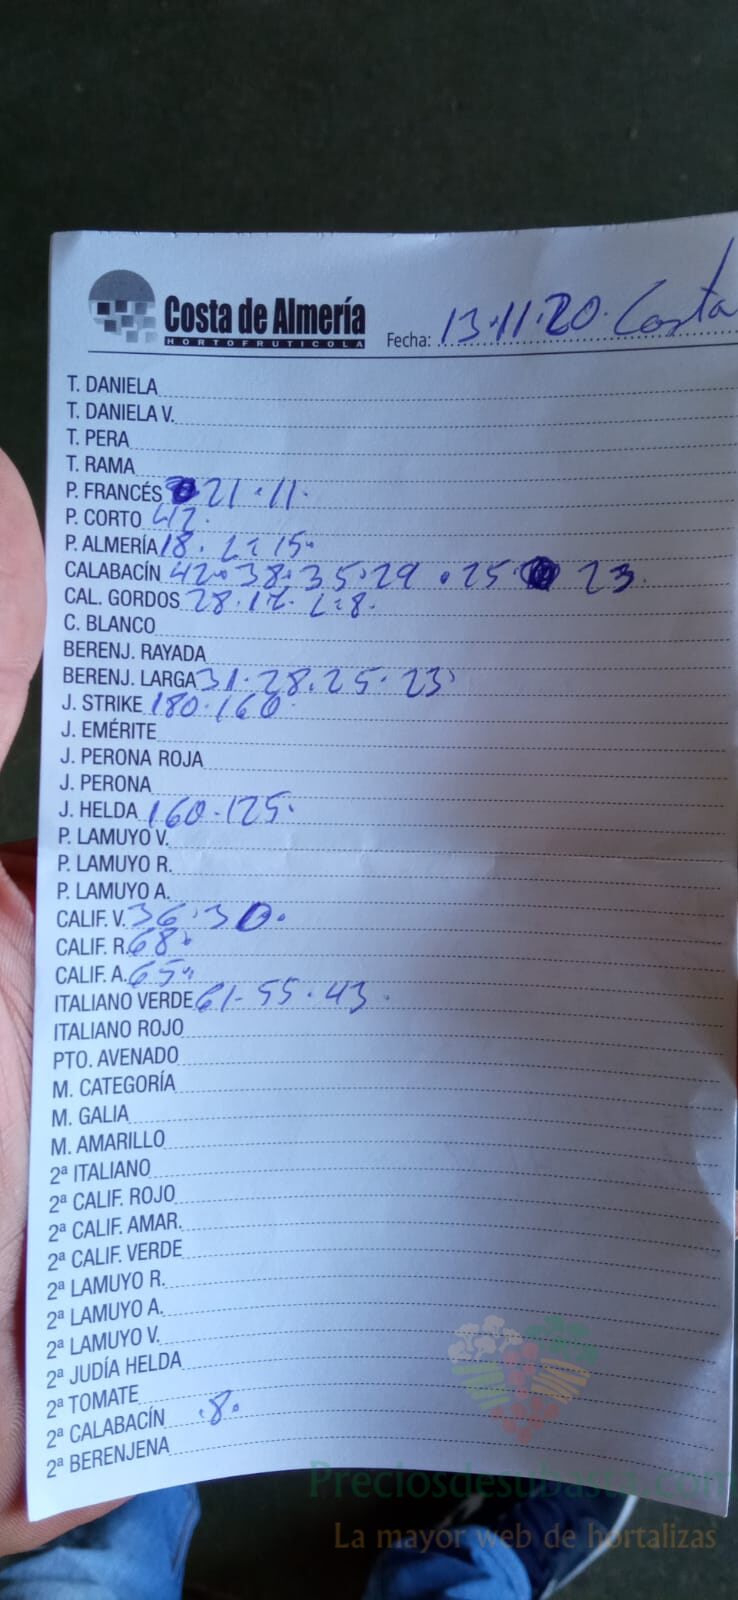 Costa de Almería
HORTOFRUTICOLA
Fecha: 13·11·20· Costa
T. DANIELA
T. DANIELA V.
T. PERA
T. RAMA
P. FRANCÉS 21·11·
P. CORTO 42·
P. ALMERÍA 18· 15·
CALABACÍN 42·38·35·29·25· 23·
CAL. GORDOS 28· 8·
C. BLANCO
BERENJ. RAYADA
BERENJ. LARGA 31·28·25·23·
J. STRIKE 180·160·
J. EMÉRITE
J. PERONA ROJA
J. PERONA
J. HELDA 160·125·
P. LAMUYO V.
P. LAMUYO R.
P. LAMUYO A.
CALIF. V. 36·30·
CALIF. R. 68·
CALIF. A. 65·
ITALIANO VERDE 61-55·43·
ITALIANO ROJO
PTO. AVENADO
M. CATEGORÍA
M. GALIA
M. AMARILLO
2ª ITALIANO
2ª CALIF. ROJO
2ª CALIF. AMAR.
2ª CALIF. VERDE
2ª LAMUYO R.
2ª LAMUYO A.
2ª LAMUYO V.
2ª JUDÍA HELDA
2ª TOMATE
2ª CALABACÍN ·8·
2ª BERENJENA
Preciosdesubasta.com
La mayor web de hortalizas